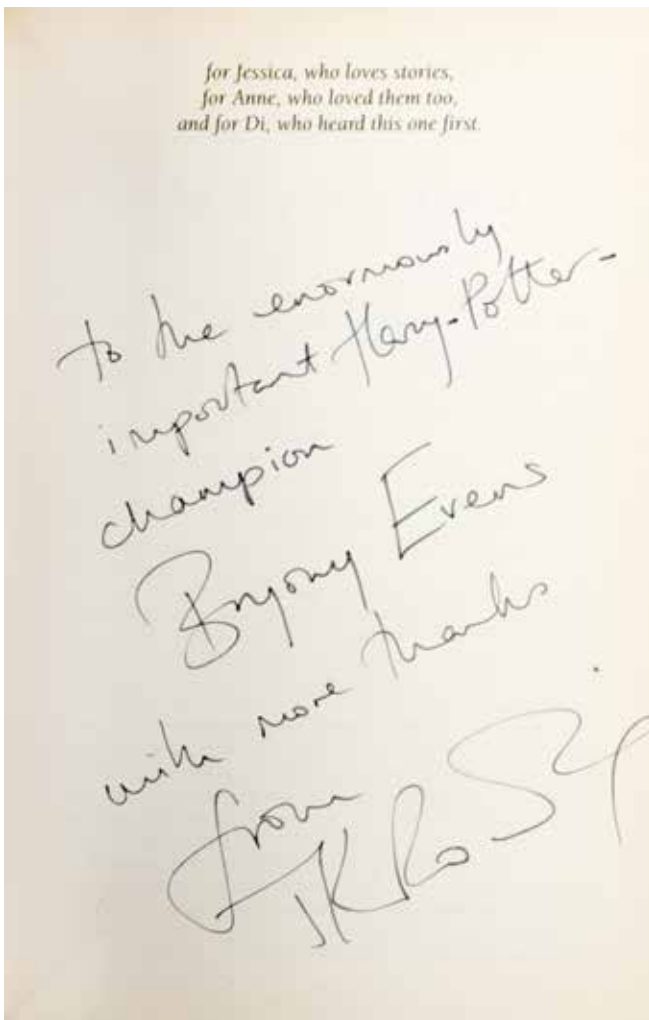 for Jessica, who loves stories,
for Anne, who loved them too,
and for Di, who heard this one first.
To the enormously
important Harry-Potter-
champion
Bryony Evens
with more thanks
from
JK Rowling